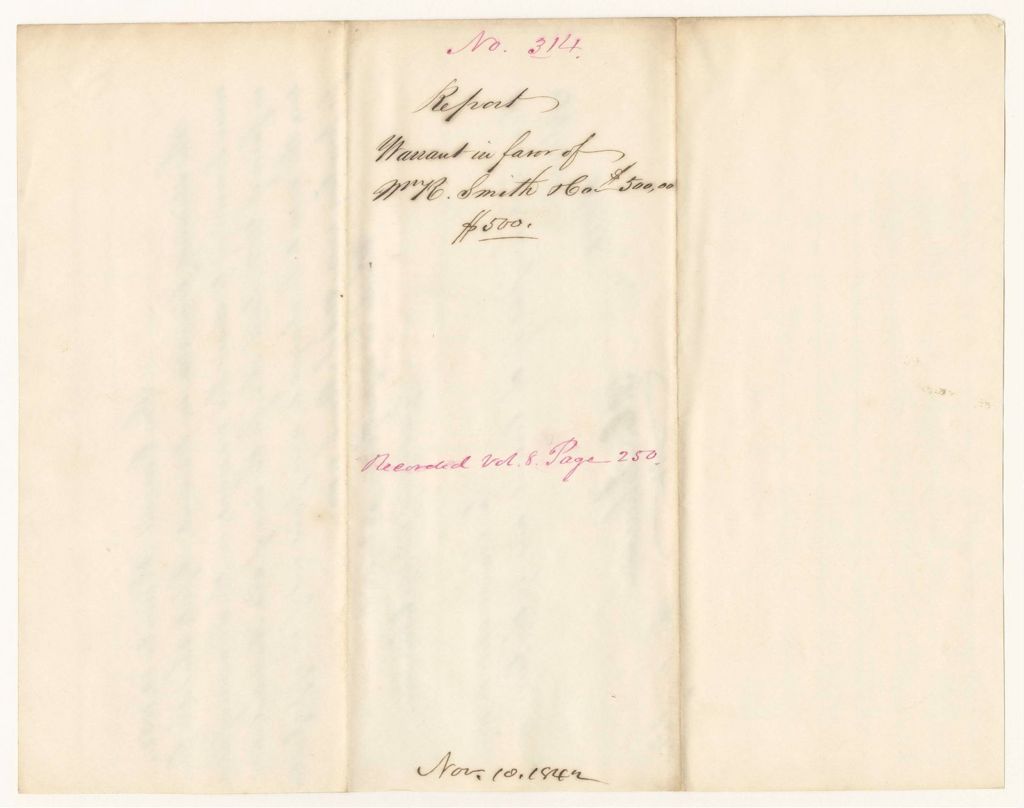 No. 314.
Report
Warrant in favor of
Wm R. Smith & Co. $500,00
$500.
Recorded Vol. 8. Page 250.
Nov. 10. 1842